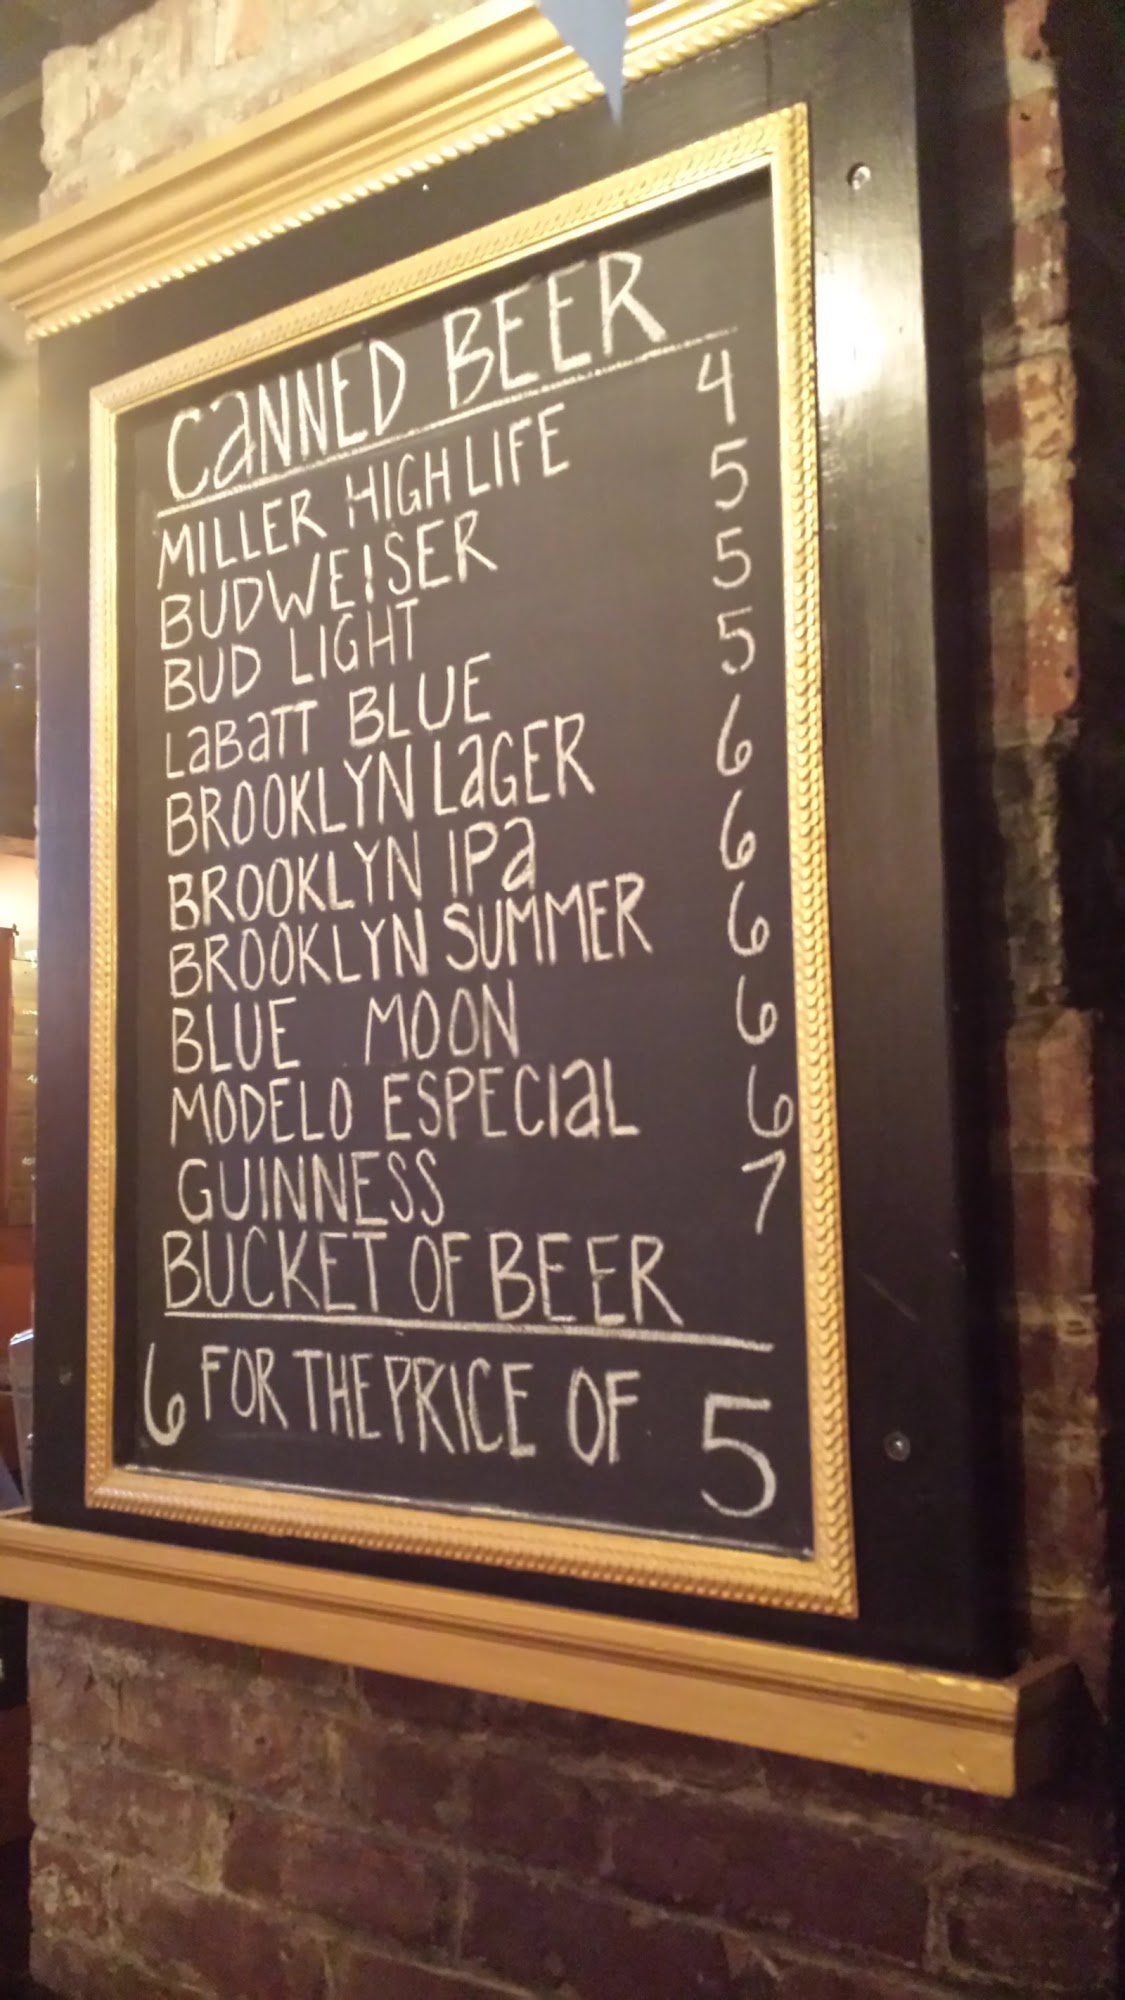 CANNED BEER
MILLER HIGH LIFE 4
BUDWEISER 5
BUD LIGHT 5
LABATT BLUE 5
BROOKLYN LAGER 6
BROOKLYN IPA 6
BROOKLYN SUMMER 6
BLUE MOON 6
MODELO ESPECIAL 6
GUINNESS 7
BUCKET OF BEER
6 FOR THE PRICE OF 5